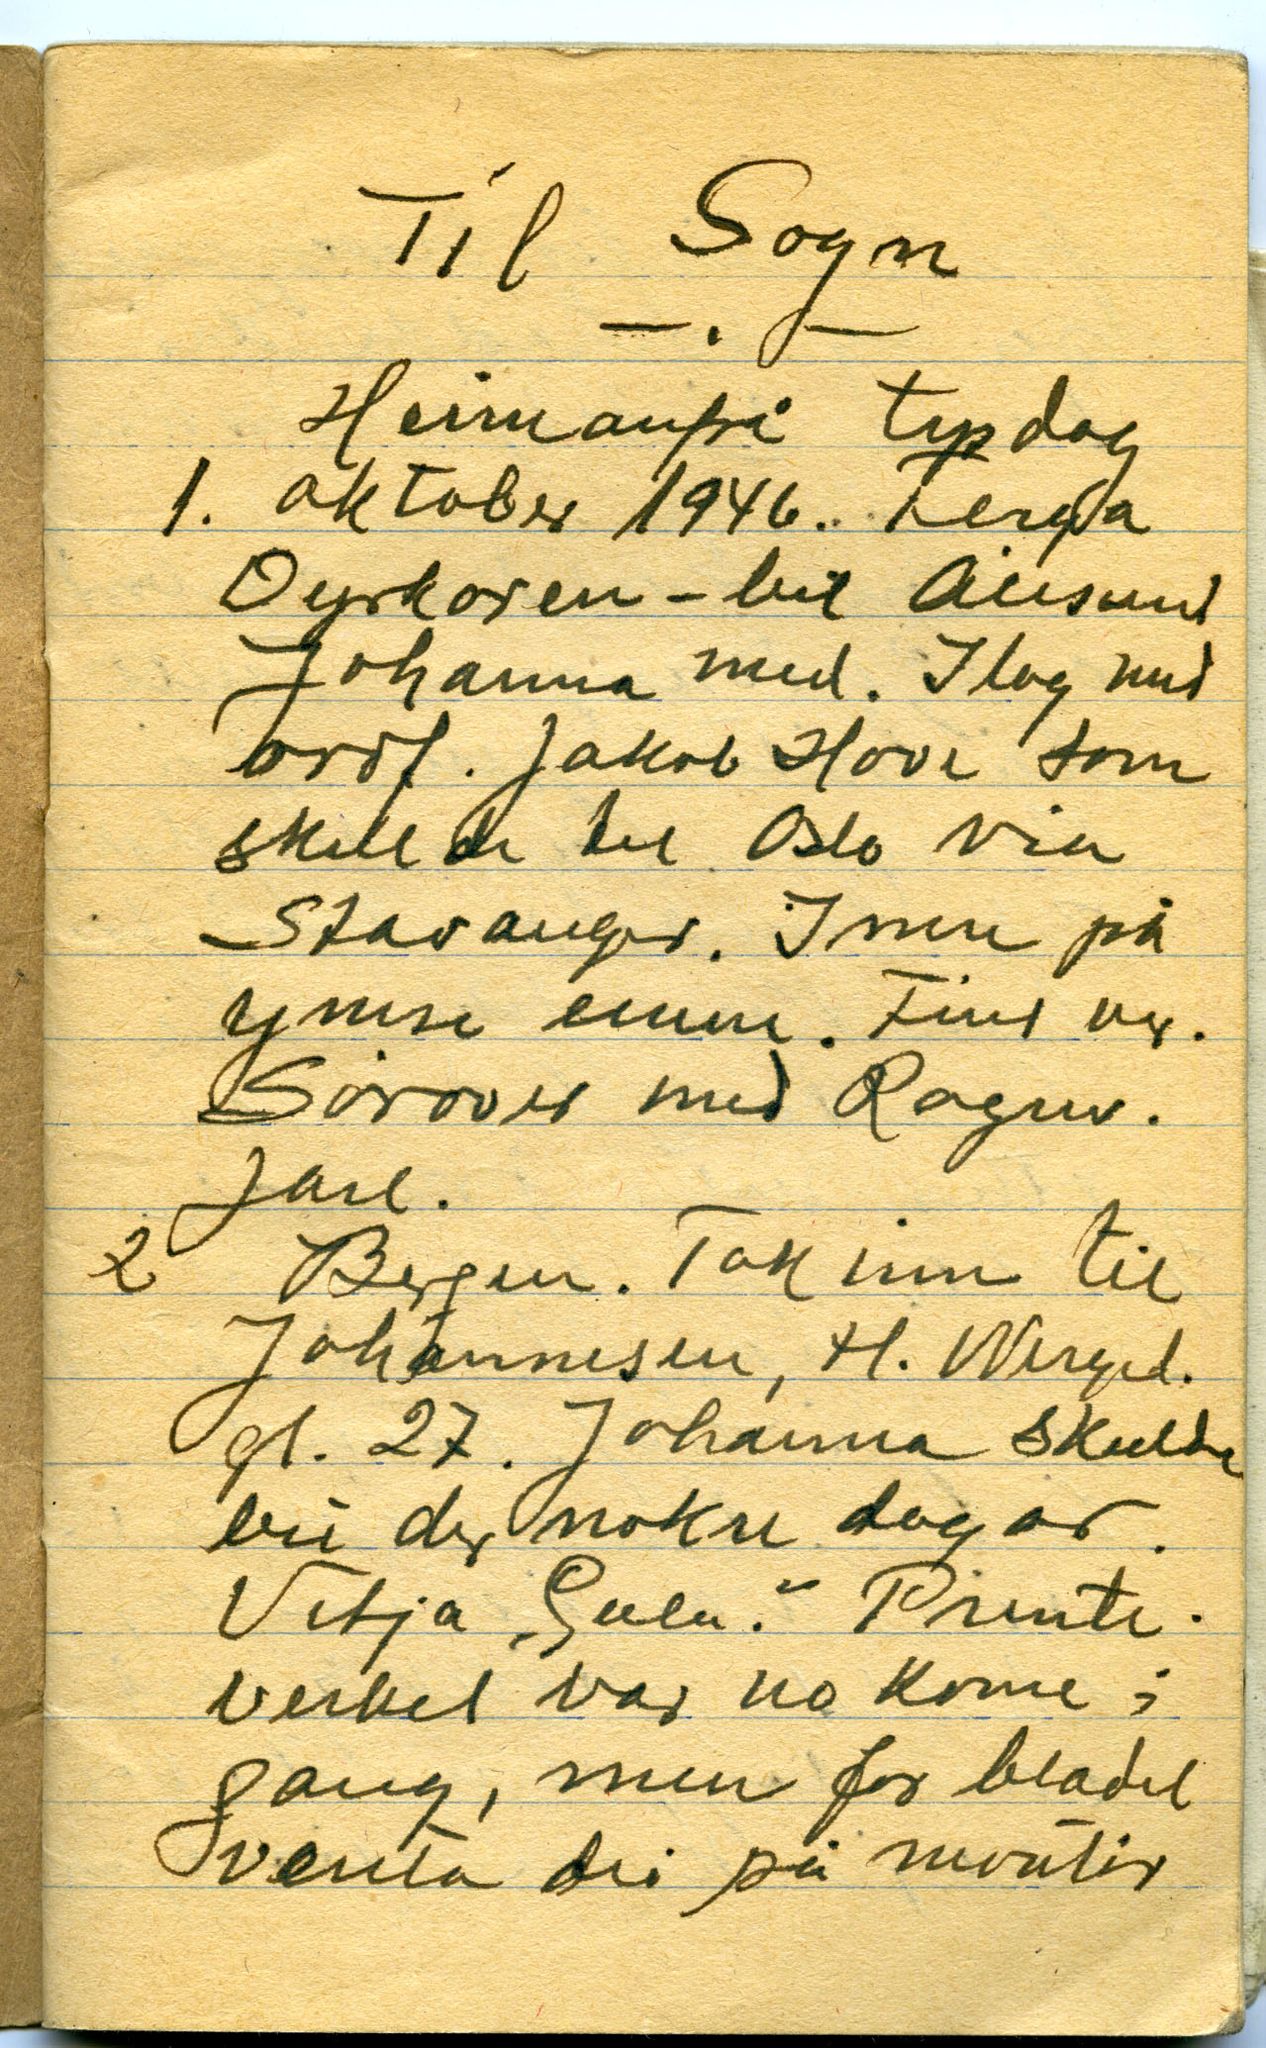 Til Sogn
— . —
Heimanfrå tysdag
1. oktober 1946. Ferga
Dyrkoren - bil Ålesund
Johanna med. I lag med
ordf. Jakob Hove som
skulde til Oslo via
Stavanger. Inne på
ymse emne. Fint ver.
Sörover med Ragnv.
Jarl.
2 Bergen. Tok inn til
Johannesen, H. Wergel.
gt. 27. Johanna skulde
bu der nokre dagar.
Vitja „Gula". Prente-
verket var no kome i
gang, men for bladet
venta dei på montör